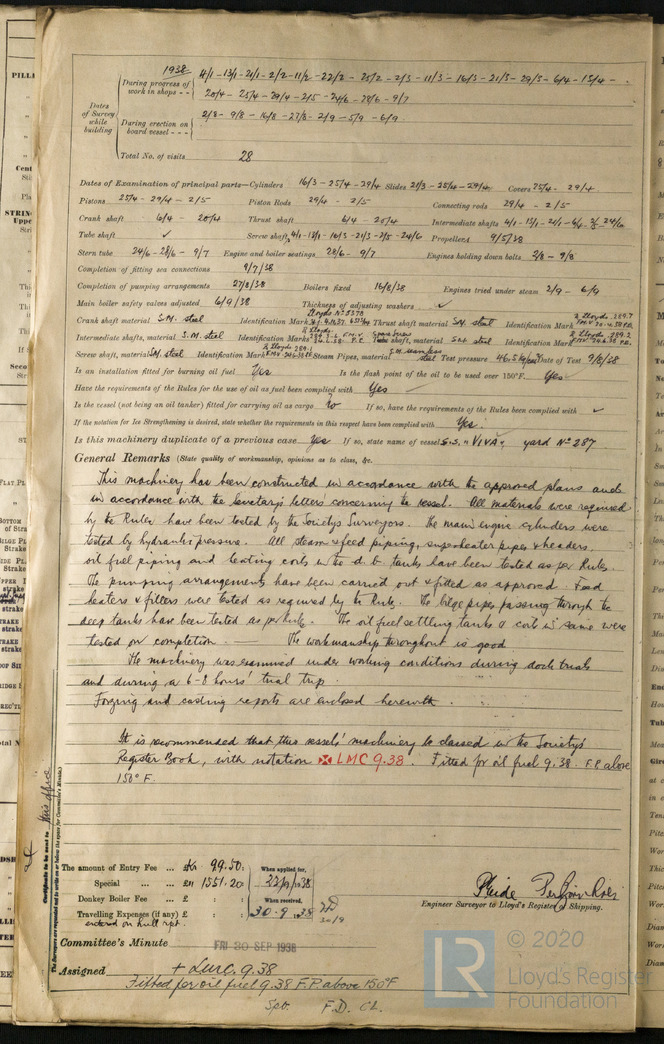 1938
Dates of Survey while building
During progress of work in shops - - 4/1 - 13/1 - 21/1 - 2/2 - 11/2 - 22/2 - 25/2 - 2/3 - 11/3 - 16/3 - 21/3 - 29/3 - 6/4 - 15/4 -
20/4 - 25/4 - 29/4 - 2/5 - 24/6 - 28/6 - 9/7
During erection on board vessel - - - 2/8 - 9/8 - 16/8 - 27/8 - 2/9 - 5/9 - 6/9
Total No. of visits 28
Dates of Examination of principal parts—Cylinders 16/3 - 25/4 - 29/4 Slides 21/3 - 25/4 - 29/4 Covers 25/4 - 29/4
Pistons 25/4 - 29/4 - 2/5 Piston Rods 29/4 - 2/5 Connecting rods 29/4 - 2/5
Crank shaft 6/4 - 20/4 Thrust shaft 6/4 - 20/4 Intermediate shafts 4/1 - 13/1 - 21/1 - 6/4 - 24/6
Tube shaft ✓ Screw shaft 4/1 - 13/1 - 16/3 - 21/3 - 2/5 - 24/6 Propeller 9/5/38
Stern tube 24/6 - 28/6 - 9/7 Engine and boiler seatings 28/6 - 9/7 Engines holding down bolts 2/8 - 9/8
Completion of fitting sea connections 9/7/38
Completion of pumping arrangements 27/8/38 Boilers fixed 16/8/38 Engines tried under steam 2/9 - 6/9
Main boiler safety valves adjusted 6/9/38 Thickness of adjusting washers ✓
Crank shaft material S.M. steel Identification Mark Lloyds No 5578 Thrust shaft material S.M. steel Identification Mark Lloyds 289.7
Intermediate shafts, material S.M. steel Identification Marks Lloyds Tube shaft, material S.M. steel Identification Mark Lloyds 289.2
Screw shaft, material S.M. steel Identification Mark Lloyds 289.1 Steam Pipes, material S.M. seamless steel Test pressure Date of Test 9/8/38
Is an installation fitted for burning oil fuel Yes Is the flash point of the oil to be used over 150°F. Yes
Have the requirements of the Rules for the use of oil as fuel been complied with Yes
Is the vessel (not being an oil tanker) fitted for carrying oil as cargo No If so, have the requirements of the Rules been complied with ✓
If the notation for Ice Strengthening is desired, state whether the requirements in this respect have been complied with Yes.
Is this machinery duplicate of a previous case Yes If so, state name of vessel S.S. "VIVA" yard No 287
General Remarks (State quality of workmanship, opinions as to class, &c.
This machinery has been constructed in accordance with the approved plans and
in accordance with the Secretary's letters concerning the vessel. All materials were required
by the Rules have been tested by the Societys Surveyors. The main engine cylinders were
tested by hydraulic pressure. All steam & feed piping, superheater pipes & headers,
oil fuel piping and heating coils in the d.b. tanks have been tested as per Rules.
The pumping arrangements have been carried out & fitted as approved. Feed
heaters & filters were tested as required by the Rules. The bilge pipes passing through the
deep tanks have been tested as per Rule. The oil fuel settling tanks & coils in same were
tested on completion. — The workmanship throughout is good.
The machinery was examined under working conditions during dock trials
and during a 6-8 hours' trial trip.
Forging and casting reports are enclosed herewith.
It is recommended that this vessels' machinery be classed in the Society's
Register Book, with notation ✠ LMC 9.38. Fitted for oil fuel 9.38. F.P. above
150° F.
Certificate to be sent to this office
The Surveyors are requested not to write on or below the space for Committee's Minute.
The amount of Entry Fee ... Kr 99.50. When applied for, 23/9/1938
Special ... ... 1551.20
Donkey Boiler Fee ... £ : : When received,
Travelling Expenses (if any) £ : : 30.9.1938
entered on hull rpt.
30/9
Engineer Surveyor to Lloyd's Register of Shipping.
Committee's Minute FRI 30 SEP 1938
Assigned + LMC. 9.38
Fitted for oil fuel 9.38 F.P. above 150°F
Spt. F.D. CL.
LR
© 2020
Lloyd's Register
Foundation